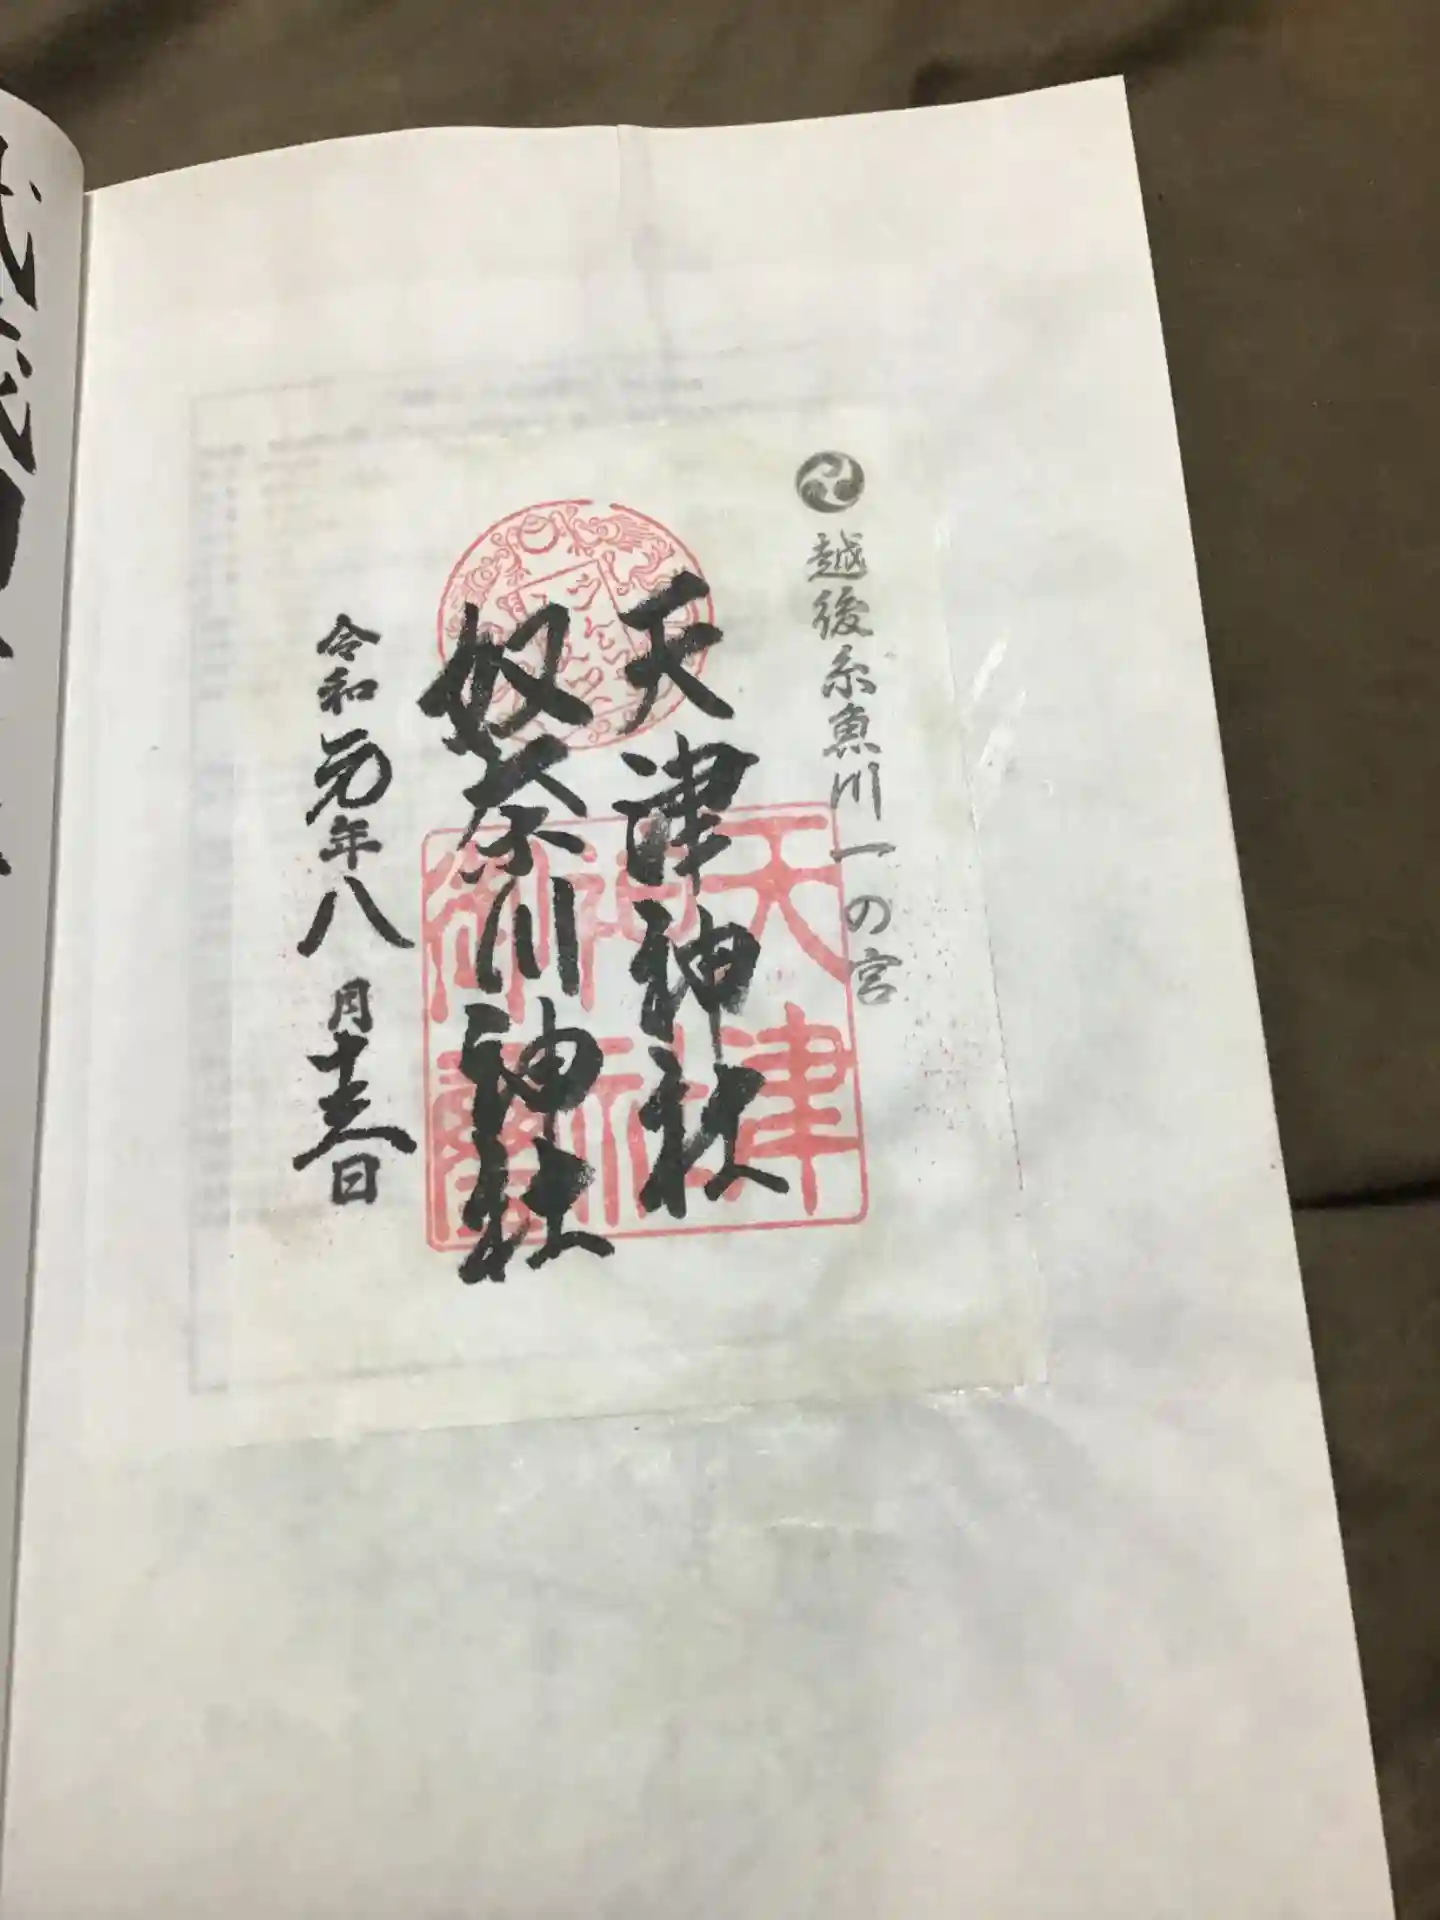 越後糸魚川一の宮
天津神社
奴奈川神社
令和元年八月十六日
天津
神社
御璽